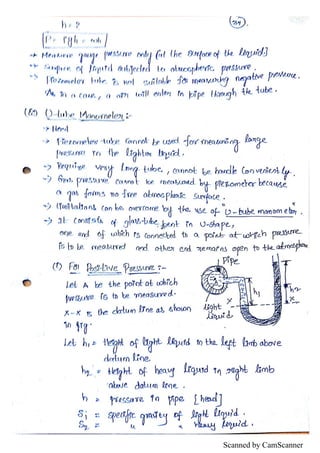 h = ?
P = ρgh = wh
→ Measure gauge pressure only (at the surface of the liquid)
→ Surface of liquid subjected to atmospheric pressure.
→ Piezometer tube is not suitable for measuring negative pressure.
As in a case, a atm will enter in pipe through the tube.
(B) U-tube Manometer :-
→ Need
→ Piezometer tube cannot be used for measuring large
pressure in the lighter liquid.
→ Require very long tube, cannot be handle conveniently.
→ Gas pressure cannot be measured by piezometer because
a gas forms no free atmospheric surface.
→ limitations can be overcome by the use of U-tube manometer.
→ It consists of glass tube bent in U-shape,
one end of which is connected to a point at which pressure
is to be measured and other end remains open to the atmosphere
(i) For Positive Pressure :-
Pipe
Let A be the point at which
pressure is to be measured.
X-X is the datum line as shown
in fig.
A
h1
h2
X
X
light
liquid
Let h1 = Height of light liquid in the left limb above
datum line.
h2 = Height of heavy liquid in right limb
above datum line.
h = pressure in pipe [head]
S1 = specific gravity of light liquid.
S2 = " " " heavy liquid.
Scanned by CamScanner